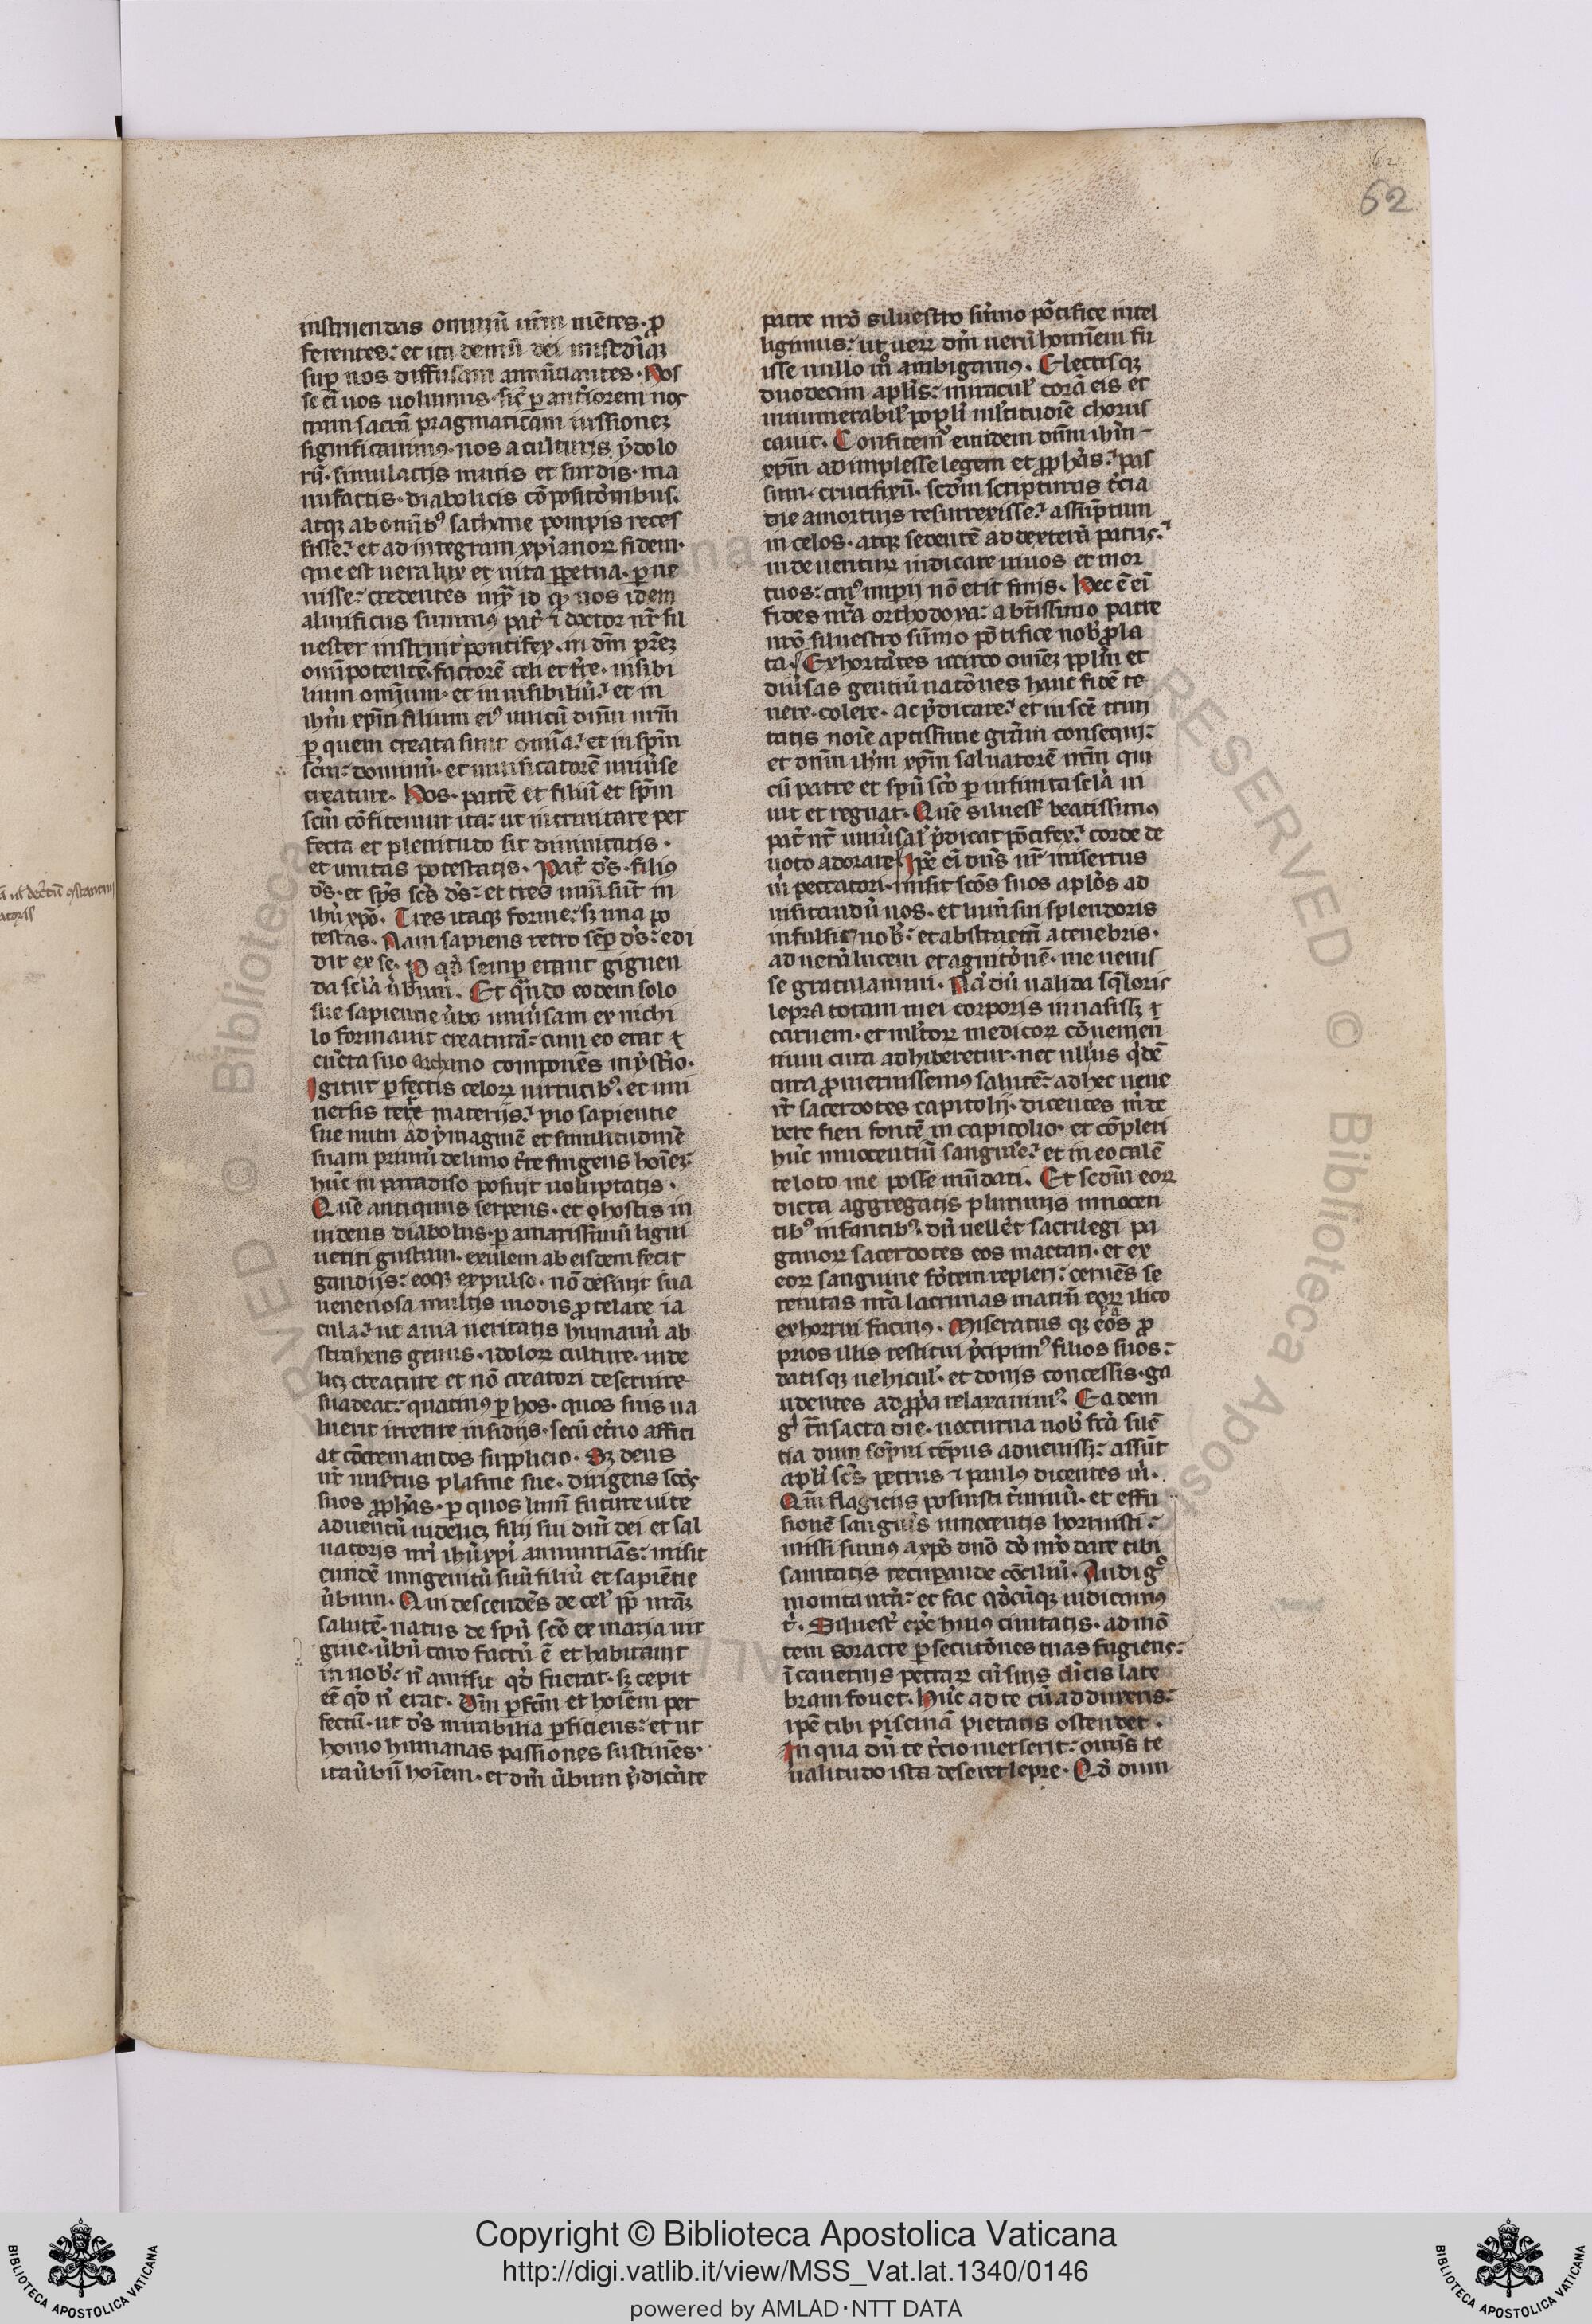 62
62
instruendas omniū nr̄m mētes. ꝑ
ferentes: et ita demū dei mīscdiāꝫ
suꝑ nos diffusam annūtiantes. Nos
se eī uos uolumus. sic̄ ꝑ anteriorem nos
tram sacrā pragmaticam iussionez
significauimꝰ. nos a culturis ydolo
rū. simulacris mutis et surdis. ma
nufactis. diabolicis cōpositōnibus.
atqꝫ ab omībꝰ sathane pompis reces
sisse: et ad integram xp̄ianoꝝ fidem.
que est uera lux et uita ꝑpetua. ꝑue
nisse: credentes iuxͣ id qꝫ nos idem
almificus summꝰ pat̄ ⁊ doctor nr̄ sil
uester instruit pontifex. in dm̄ pr̄eꝫ
omīpotentē. factorē celi et t̄re. uisibi
lium omnium. et inuisibiliū: et in
ihm̄ xpm̄ filium eiꝰ unicū dnm̄ nrm̄
ꝑ quem creata sunt omīa: et in spm̄
scm̄: dominū. et uiuificatorē uniūse
creature. Hos. patrē et filiū et spm̄
scm̄ cōfitemur ita: ut in trinitate per
fecta et plenitudo sit diuinitatis.
et unitas potestatis. Pat̄ ds̄. filiꝰ
ds̄. et sps̄ scs̄ ds̄: et tres unū sūt in
ihū xpō. Tres itaqꝫ forme: sꝫ una po
testas. Nam sapiens retro sēꝑ ds̄: edi
dit ex se. ꝑ qd̄ semꝑ erant gignen
da scl̄a ūbum. Et qn̄do eodem solo
sue sapientie ūbo uniūsam ex nichi
lo formauit creaturā: cum eo erat ⁊
cūcta suo archano componēs mysterio.
Igitur ꝑfectis celoꝝ uirtutibꝰ. et uni
uersis terre materijs: pio sapientie
sue nutu ad ymaginē et similitudinē
suam primū de limo t̄re fingens hoīeꝫ:
hūc in paradiso posuit uoluptatis.
Quē antiquus serpens. et hostis in
uidens diabolus. ꝑ amarissimū ligni
uetiti gustum. exulem ab eisdem fecit
gaudijs: eoqꝫ expulso. nō desinit sua
uenenosa multis modis ꝓtelare ia
cula: ut a uia ueritatis humanū ab
strahens genus. idoloꝝ culture. uide
licꝫ creature et nō creatori deseruire
suadeat: quatinꝰ ꝑ hos. quos suis ua
luerit irretire insidijs. secū et̄no affici
at cōcremandos supplicio. Sꝫ deus
nr̄ misertus plasme sue. dirigens scōs
suos ꝓphas. ꝑ quos lumē future uite
aduentū uidelicꝫ filij sui dnī dei et sal
uatoris nrī ihū xpī annuntiās: misit
eundē unigenitū suū filiū et sapiētie
ūbum. Qui descendēs de celꝰ ꝓp nrāꝫ
salutē. natus de spū scō ex maria uir
gine. ūbū caro factū ē et habitauit
in nobꝰ: nō amisit qd̄ fuerat. sꝫ cepit
eē qd̄ nō erat. Dm̄ ꝑfcm̄ et hoīem per
fectū. ut ds̄ mirabilia ꝑficiens: et ut
homo humanas passiones sustinēs.
ita ūbū hoīem. et dm̄ ūbum p̄dicāte
patre nrō siluestro sūmo pōtifice intel
ligimus: ut ueꝝ dm̄ uerū homīem fu
isse nullo mō ambigamꝰ. Electisqꝫ
duodecim aplis: miraculꝰ corā eis et
innumerabilꝰ popli mltitudīe chorus
cauit. Confitemꝰ eundem dnm̄ ihm̄
xpm̄ adimplesse legem et ꝓphas: pas
sum. crucifixū. scdm̄ scripturas t̄cia
die a mortuis resurrexisse: assūptum
in celos. atqꝫ sedentē ad dexterā patris:
inde uenturꝝ iudicare uiuos et mor
tuos: cuiꝰ imperij nō erit finis. Hec ē eī
fides nrā orthodoxa: a btissimo patre
nrō siluestro sūmo pōtifice nobꝰ ꝓla
ta. Exhortātes iccirco omēꝫ pplm̄ et
diūsas gentiū natōnes hanc fidē te
nere. colere. ac p̄dicare: et in scē trini
tatis noīe aptissime grām consequi:
et dnm̄ ihm̄ xpm̄ saluatorē nrm̄ qui
cū patre et spū scō ꝑ infinita scla ui
uit et regnat. Quē siluest̄ beatissimꝰ
pat̄ nr̄ uniūsalꝰ p̄dicat pōtifex: corde de
uoto adorare. Ipē eī dns̄ nr̄ misertus
m̄ peccatori. misit scōs suos aplōs ad
uisitandū nos. et lumē sui splendoris
infulsit nobꝰ: et abstractū a tenebris.
ad uerā lucem et agnitōnē. me uenis
se gratulamini. Nā dū ualida sqꝰloris
lepra totam mei corporis inuasissꝫ
carnem. et mltoꝝ medicoꝝ cōuenien
tium cura adhiberetur. nec ullius qdē
cura ꝓmeruissemꝰ salutē: ad hec uene
rt̄ sacerdotes capitolij. dicentes m̄ de
bere fieri fontē in capitolio. et cōpleri
hūc innocentiū sanguīe: et in eo calē
te loto me posse mūdari. Et scdm̄ eoꝝ
dicta aggregatis plurimis innocen
tibꝰ infantibꝰ. dū uellēt sacrilegi pa
ganoꝝ sacerdotes eos mactari. et ex
eoꝝ sanguine fōtem repleri: cernēs se
renitas nrā lacrimas matrū eoꝝ ilico
exhorrui facinꝰ. Miseratus qꝫ eos ꝓ
prios illis restitui p̄cipimꝰ filios suos:
datisqꝫ uehiculꝰ. et donis concessis. ga
udentes ad ꝓpa relaxauimꝰ. Eadem
gͥ tn̄sacta die. nocturna nobꝰ fcā silē
tia dum somni tēpus aduenissꝫ: assūt
apli scs̄ petrus ⁊ paulꝰ dicentes m̄.
Qm̄ flagiciis posuisti t̄minū. et effu
sionē sanguīs innocentis horruisti:
missi sumꝰ a xpō dnō dō nrō dare tibi
sanitatis recuperande cōciliū. Audi gͦ
monita nrā: et fac qd̄cūqꝫ iudicamꝰ
t̄. Siluest̄ epc̄ huiꝰ ciuitatis. ad mō
tem soracte ꝑsecutōnes tuas fugiens:
ī cauernis petraꝝ cū suis cl̄icis late
bram fouet. Hūc ad te cū adduxeris:
ipē tibi piscinā pietatis ostendet.
In qua dū te t̄cio merserit: omīs te
ualitudo ista deseret lepre. Qd̄ dum
RESERVED © Biblioteca Apost
RVED © Biblioteca
Copyright © Biblioteca Apostolica Vaticana
http://digi.vatlib.it/view/MSS_Vat.lat.1340/0146
powered by AMLAD·NTT DATA
BIBLIOTECA APOSTOLICA VATICANA
BIBLIOTECA APOSTOLICA VATICANA